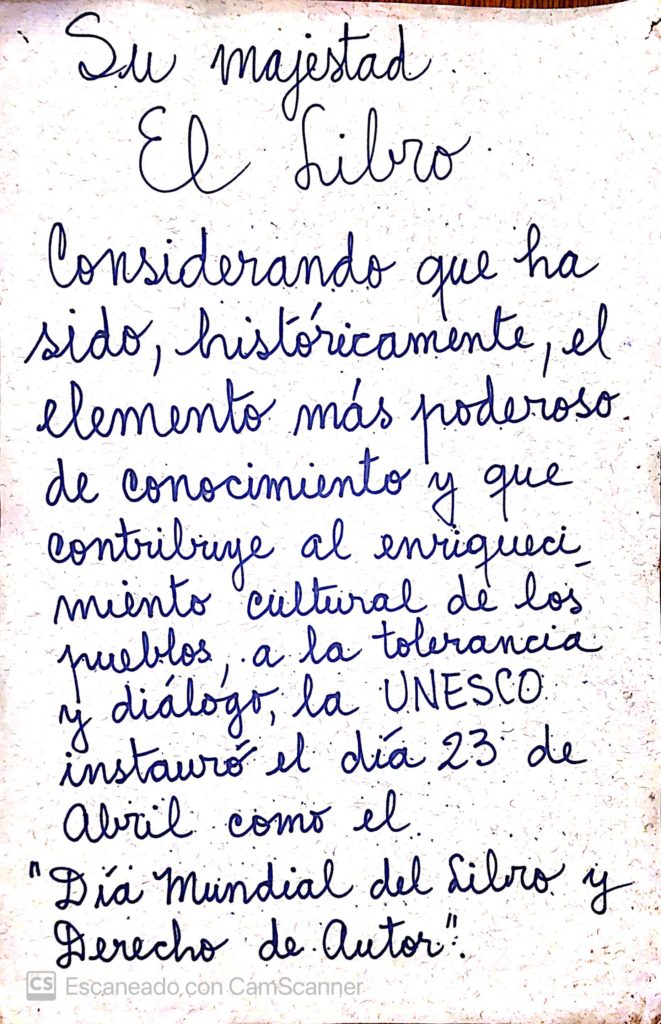 Su majestad
El Libro
Considerando que ha
sido, históricamente, el
elemento más poderoso
de conocimiento y que
contribuye al enriqueci_
miento cultural de los
pueblos, a la tolerancia
y diálogo, la UNESCO
instauró el día 23 de
Abril como el
"Día Mundial del Libro y
Derecho de Autor".
CS Escaneado con CamScanner